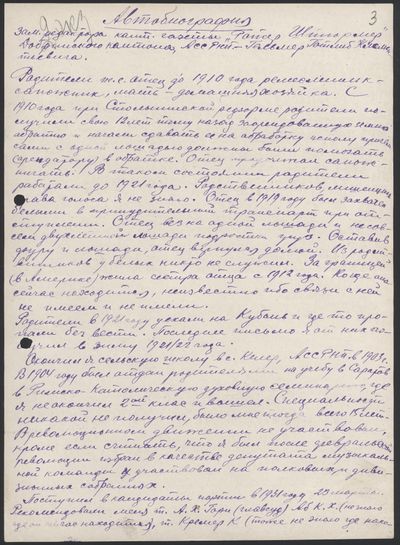 Автобиография
3
зам. редактора кант. газеты "Ротер Штурмер"
Добринского кантона, АССРНП - Гессмер Готлиб
Родители т.е. отец до 1910 года ремесленник-
сапожник, мать - домашняя хозяйка. С
1910 года при Столыпинской реформе родители по-
лучили свою 12 лет тому назад землю
обратно и начали сдавать ее на обработку
сами с одной лошадью должны были помогать
(арендатору) в обработке. Отец продолжал сапож-
ничать. В таком состоянии родители
работали до 1921 года. Родственников, лишенных
права голоса я не знаю. Отец в 1919 году был захвачен
белыми в принудительный транспорт при от-
ступлении. Отец был на одной лошади и
свой двух лошади Оставив
и лошадь, отец вернулся домой. Из родст-
венников у белых никто не служил. За границей
(в Америке) жила сестра отца с 1912 года. Когда она
сейчас находится, неизвестно ибо связи с ней
не имеем и не имели.
Родители в 1921 году уехали на Кубань и где-то про-
пали без вести. Последнее письмо я от них по-
лучил в зиму 1921/22 года.
Окончил я сельскую школу в с. Келер, АССРНП в 1903 г.
В 1904 году был отдан родителями на учебу в Саратов
в Римско-Католическую духовную семинарию, где
я окончил 2ой класс и вышел. Специальности
никакой не получил, было мне тогда всего лет.
В революционном движении не участвовал,
кроме если считать, что я был после февральской
революции избран в качестве депутата музыкаль-
ной команды и участвовал на полковых и диви-
зионных собраниях.
Поступил в кандидаты партии в 1931 году 23 марта.
Рекомендовали меня т. А. Х. Горн (главсуд) Аб К. Х. (не знаю
где он сейчас находится), т. Кремер К (тоже не знаю где нахо-